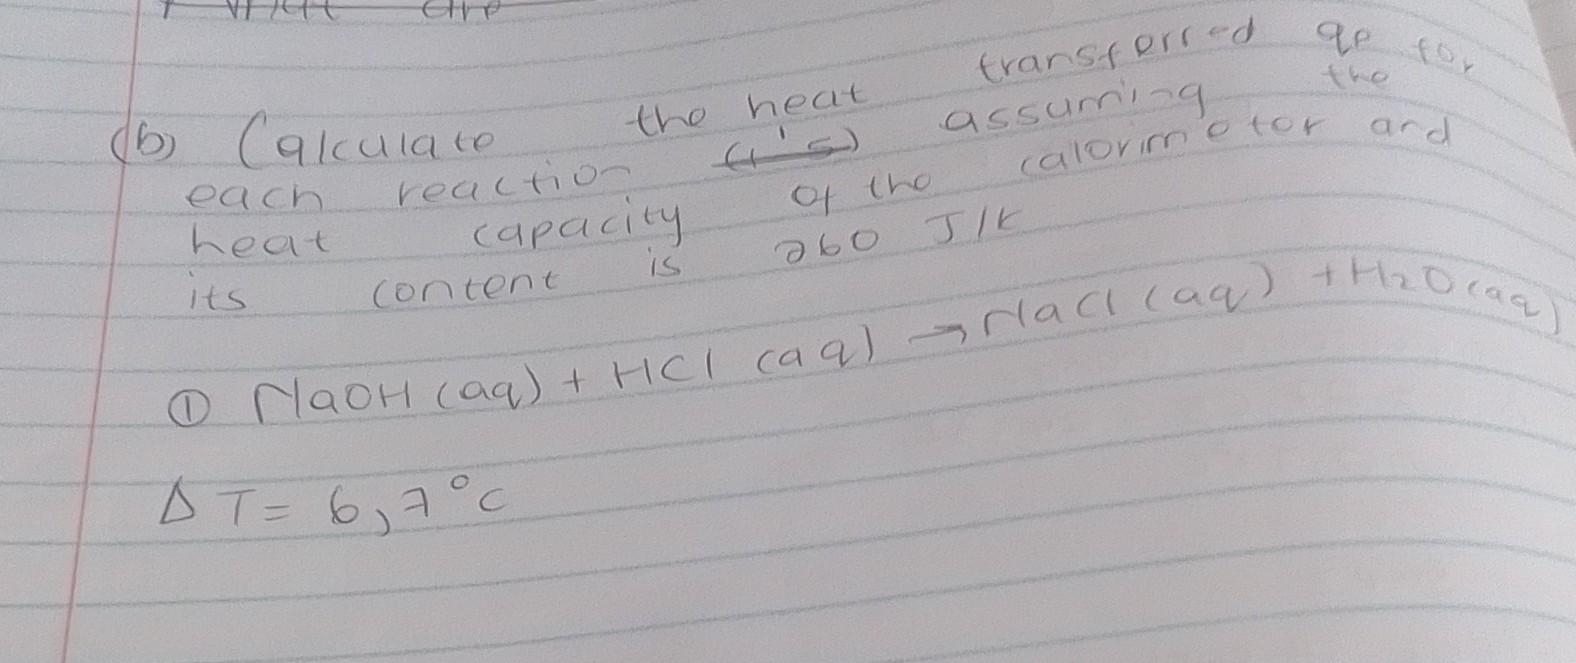 are
(b) Calculate the heat transferred qp for
each reaction assuming the
heat capacity of the calorimotor and
its content is 260 J/K
① NaOH (aq) + HCl (aq) → NaCl (aq) + H2O (aq)
ΔT = 6,7°C